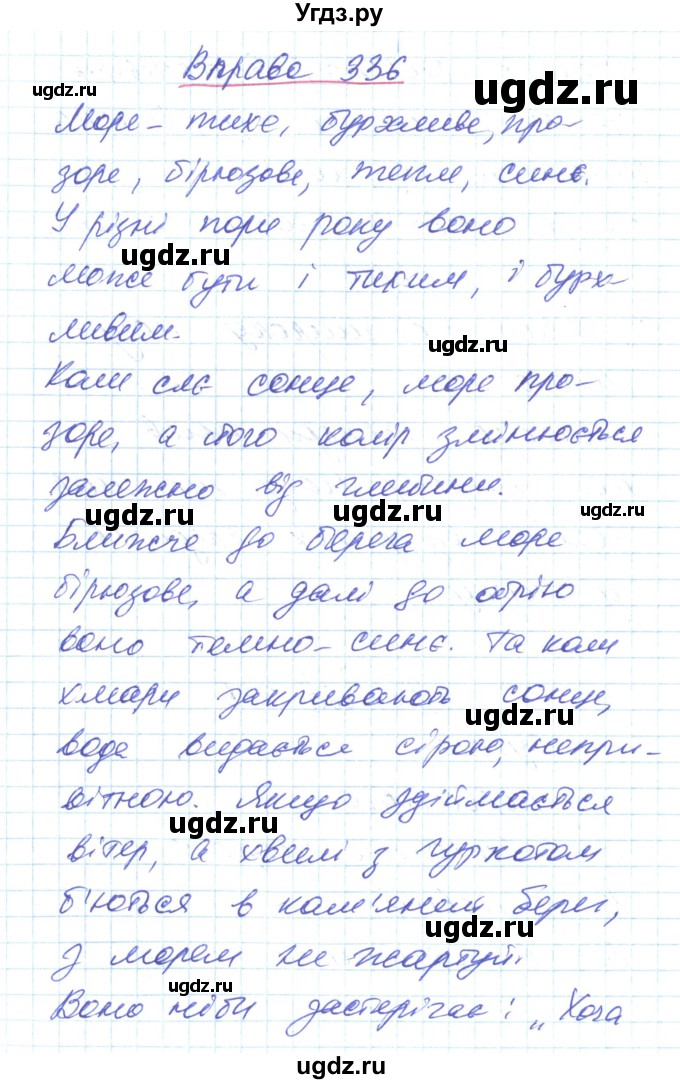 Угдз.ру
Вправа 336
ugdz.ru
ugdz.ru
Море - тихе, бурхливе, про-
зоре, бірюзове, тепле, синє.
У різні пори року воно
ugdz.ru
може бути і тихим, і бурх-
ливим.
Коли сяє сонце, море про-
зоре, а його колір змінюється
залежно від глибини.
ugdz.ru
ugdz.ru
ugdz.ru
Ближче до берега море
бірюзове, а далі до обрію
воно темно-синє. Та коли
хмари закривають сонце,
ugdz.ru
вода видається сірою, непри-
вітною. Якщо здіймається
ugdz.ru
вітер, а хвилі з гуркотом
б'ються в кам'яний берег,
ugdz.ru
з морем не жартуй.
ugdz.ru
Воно ніби застерігає: „Хоча
ugdz.ru